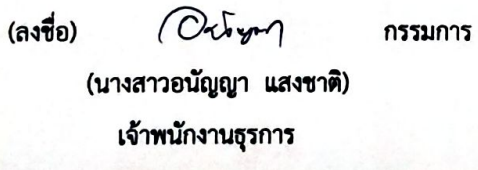 (ลงชื่อ) กรรมการ
(นางสาวอนัญญา แสงชาติ)
เจ้าพนักงานธุรการ